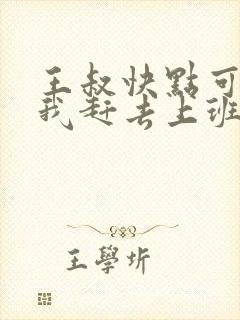 王叔快點可
我赶去上班
王學圻